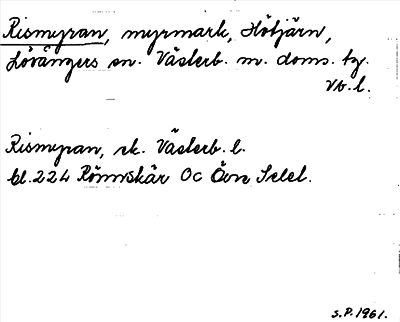 Rismyran, myrmark, Hötjärn,
Lövångers sn. Västerb. m. doms. tg.
Vb. l.
Rismyran, ek. Västerb. l.
bl. 224 Rönnskär Oc Övre Selel.
S.P. 1961.